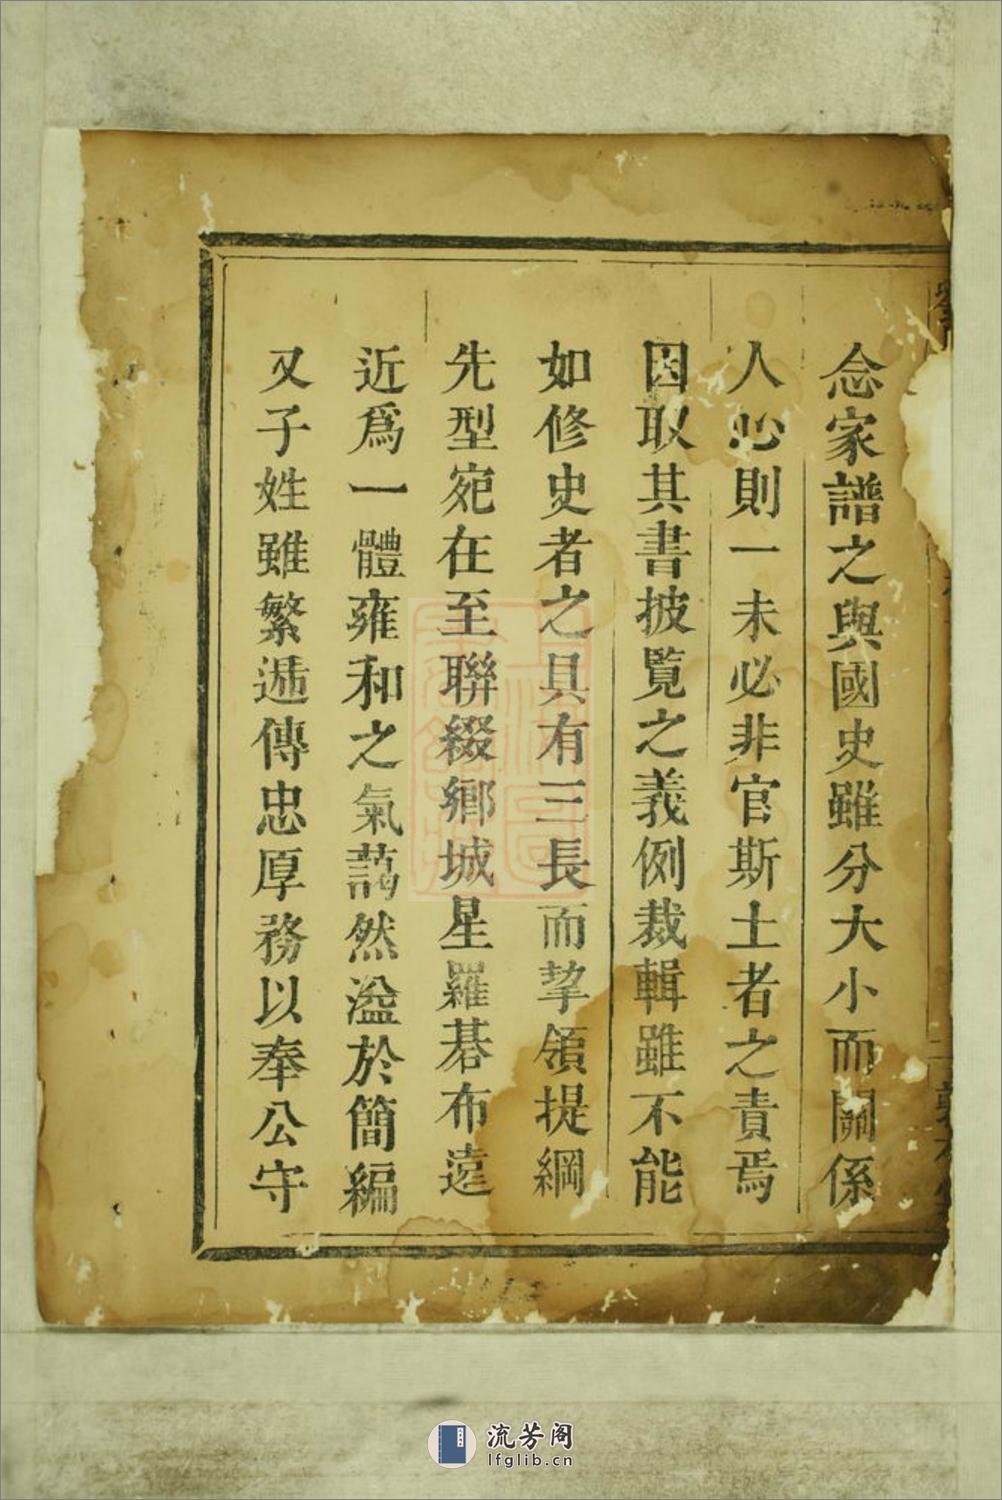 念家譜之與國史雖分大小而關係
人心則一未必非官斯土者之責焉
因取其書披覽之義例裁輯雖不能
如修史者之具有三長而挈領提綱
先型宛在至聯綴鄉城星羅碁布遠
近爲一體雍和之氣藹然溢於簡編
又子姓雖繁遞傳忠厚務以奉公守
流芳阁
lfglib.cn